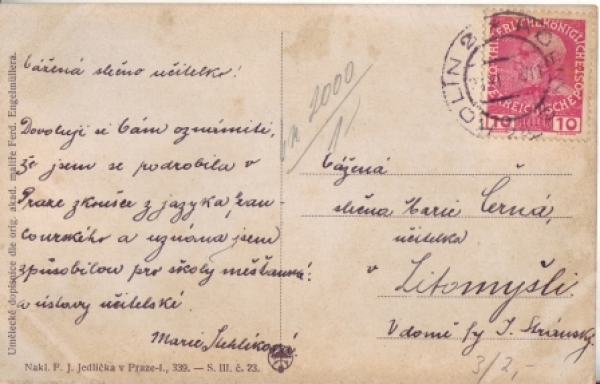 Umělecké dopisnice dle orig. akad. malíře Ferd. Engelmüllera.
Vážená slečno učitelko!
Dovoluji si Vám oznámiti,
že jsem se podrobila v
Praze zkoušce z jazyka fran-
couzského a uznána jsem
způsobilou pro školy měšťanské
a ústavy učitelské.
Marie Stehlíková
Nakl. F. J. Jedlička v Praze-I., 339. — S. III. č. 23.
2000
KOLÍN 2
10 HELLER 10
Vážená
slečna Marie Černá,
učitelka
v
Litomyšli.
V domě p. J. Stránský
3/2,-